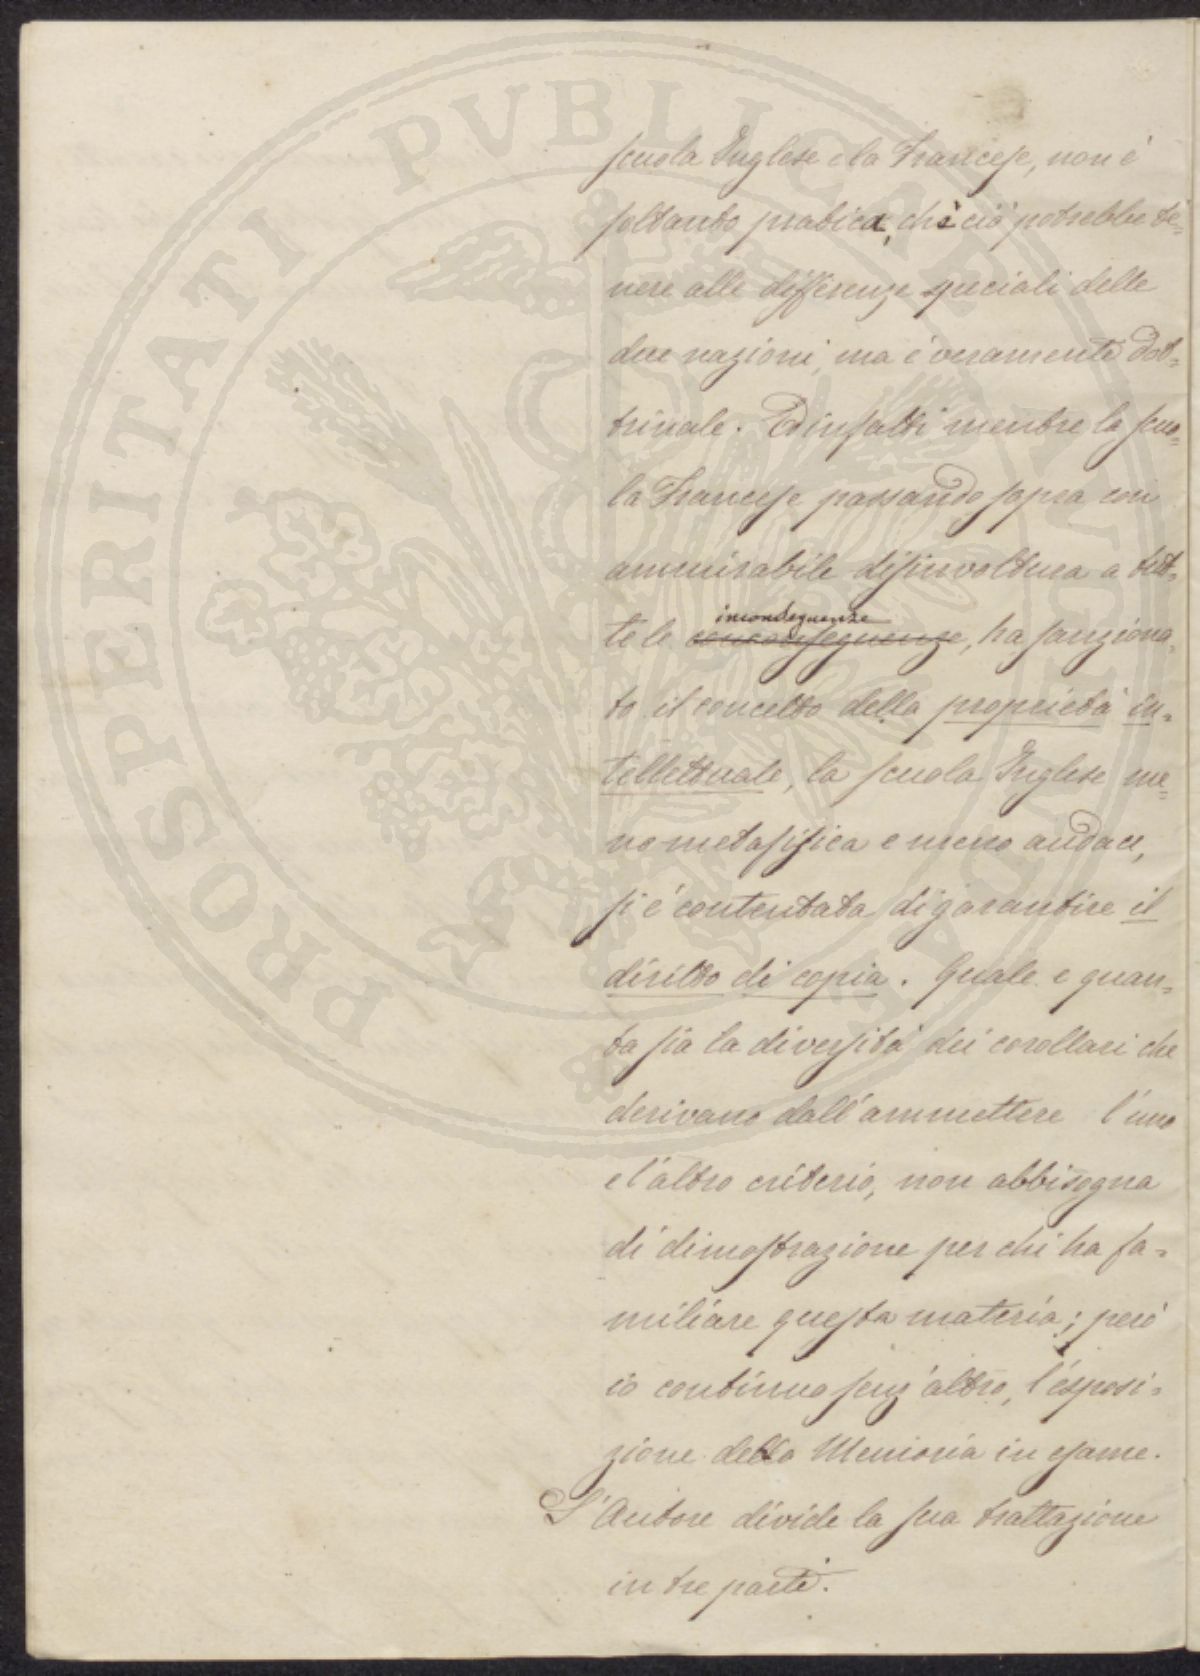 PROSPERITATI PVBLICAE AVGENDAE
scuola Inglese e la Francese, non è
soltanto pratica, chè ciò potrebbe te=
nere alle differenze speciali delle
due nazioni, ma è veramente dot=
trinale. Ed infatti mentre la scuo=
la Francese passando sopra con
ammirabile disinvoltura a tut=
te le inconseguenze, ha sanziona=
to il concetto della proprietà in=
tellettuale, la scuola Inglese me=
no metafisica e meno audace,
si è contentata di garantire il
diritto di copia. Quale e quan=
ta sia la diversità dei corollari che
derivano dall'ammettere l'uno
e l'altro criterio, non abbisogna
di dimostrazione per chi ha fa=
miliare questa materia; però
io continuo senz'altro, l'esposi=
zione della Memoria in esame.
L'Autore divide la sua trattazione
in tre parti.